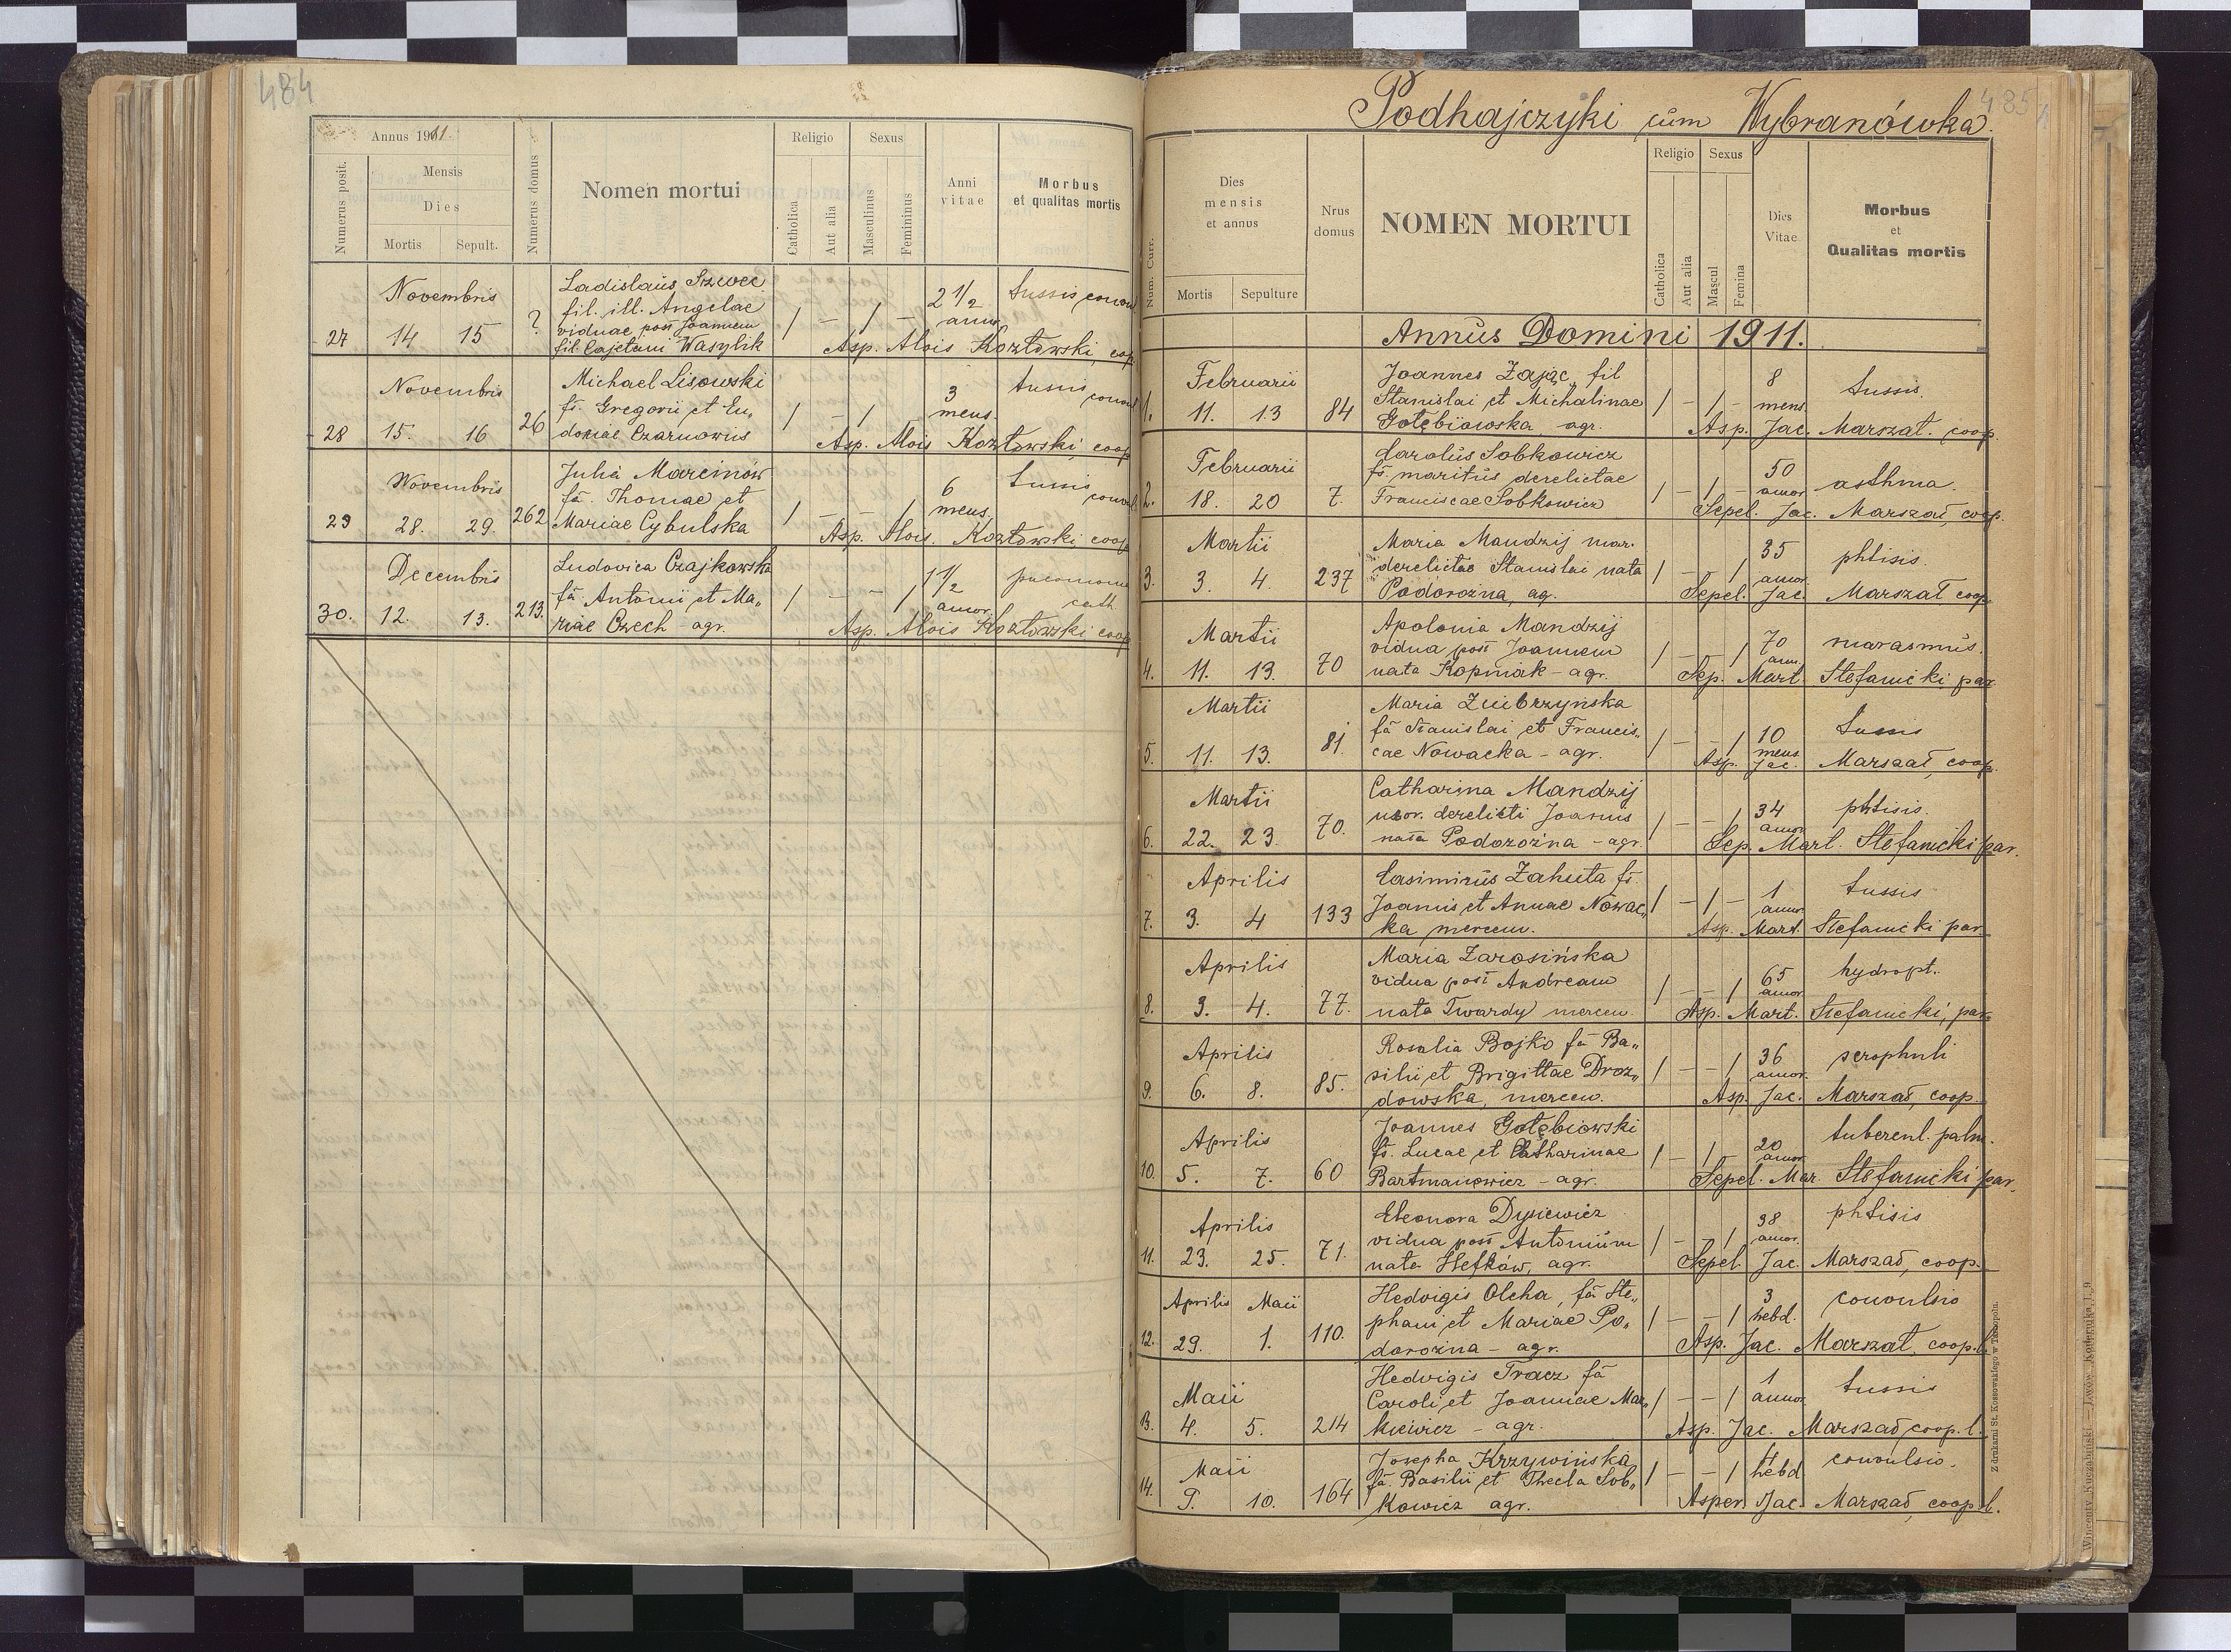 484
Annus 1911
Numerus posit.
Mensis
Dies
Mortis Sepult.
Numerus domus
Nomen mortui
Religio
Catholica
Aut alia
Sexus
Masculinus
Femininus
Anni
vitae
Morbus
et qualitas mortis
Novembris
27 14 15 ?
Ladislaus Szwec
fil. ill. Angelae
viduae post Joannem
fil. Cajetani Wasylik
1 – 1 –
2 1/2
annor.
tussis convul
Asp. Alois Kozłowski, coop.
Novembris
28 15. 16 26
Michael Lisowski
fs. Gregorii et Eu„
doxiae Czarnowiis
1 – 1
3
mens.
tussis convul
Asp. Alois Kozłowski, coop
Novembris
29 28. 29. 262
Julia Marcinów
fa. Thomae et
Mariae Cybulska
1 – – 1
6
mens.
tussis convul.
Asp. Alois. Kozłowski coop
Decembris
30. 12. 13. 213.
Ludovica Czajkowska
fa. Antonii et Ma„
riae Czech – agr.
1 – – 1
1 1/2
annor.
cath.
Asp. Alois Kozłowski coop
485
Podhajczyki cum Wybranówka.
Num. Curr.
Dies
mensis
et annus
Mortis Sepulture
Nrus
domus
NOMEN MORTUI
Religio
Catholica
Aut alia
Sexus
Mascul
Femina
Dies
Vitae
Morbus
et
Qualitas mortis
Annus Domini 1911.
Februarii
1. 11. 13 84
Joannes Zając, fil
Stanislai et Michalinae
Gołębiowska agr.
1 – 1 –
8
mens.
tussis.
Asp. Jac. Marszał. coop.
Februarii
2. 18. 20 7.
Carolus Sobkowicz
fs. maritus derelictae
Franciscae Sobkowicz
1 – 1 –
50
annor
asthma.
Sepel. Jac. Marszał, coop.
Martii
3. 3. 4. 237
Maria Mandzij mar.
derelictae Stanislai nata
Podorożna, ag.
1 – – 1
35
annor.
phtisis.
Sepel. Jac. Marszał coop
Martii
4. 11. 13. 70
Apolonia Mandzij
vidua post Joannem
nata Kopniak – agr.
1 – – 1
70
ann.
marasmus.
Sep. Mart. Stefanicki par
Martii
5. 11. 13. 81.
Maria Zubrzyńska
fa Stanislai et Francis„
cae Nowacka – agr.
1 – – 1
10
mens.
tussis
Asp. Jac. Marszał, coop.
Martii
6. 22. 23. 70.
Catharina Mandzij
uxor. derelicti Joannis
nata Podorożna – agr.
1 – – 1
34
annor
phtisis.
Sep. Mart. Stefanicki par.
Aprilis
7. 3. 4 133
Casimirus Zahuta fs.
Joannis et Annae Nowac„
ka mercen.
1 – 1 –
1
annor.
tussis
Asp. Mart. Stefanicki par
Aprilis
8. 3. 4. 77.
Maria Zarosińska
vidua post Andream
nata Twardy mercen.
1 – – 1
65
annor
hydropt.
Asp. Mart. Stefanicki, par.
Aprilis
9. 6. 8. 85.
Rosalia Bojko fa Ba„
silii et Brigittae Droz„
dowska, mercen.
1 – – 1
36
annor.
scrophuli
Asp. Jac. Marszał, coop.
Aprilis
10. 5. 7. 60
Joannes Gołębiowski
fs. Lucae et Catharinae
Bartmanowicz – agr.
1 – 1 –
20
annor
tubercul. palm.
Sepel. Mar. Stefanicki par.
Aprilis
11. 23. 25. 71.
Eleonora Dysiewicz
vidua post Antonium
nata Hefków, agr.
1 – – 1
38
annor.
phtisis
Sepel Jac. Marszał, coop.
Aprilis Maii
12. 29. 1. 110.
Hedvigis Olcha, fa Ste„
phani et Mariae Po„
dorożna – agr.
1 – – 1
3
hebd.
convulsio
Asp. Jac. Marszał, coop. l.
Maii
13. 4. 5. 214
Hedvigis Tracz fa
Caroli et Joannae Mar„
kiewicz – agr.
1 – – 1
1
annor.
tussis
Asp. Jac. Marszał, coop. l.
Maii
14. 9. 10. 164
Josepha Krzywińska
fa. Basilii et Thecla Sob„
kowicz agr.
1 – – 1
4
hebd
convulsio.
Asper. Jac. Marszał, coop. l.
Z drukarni St. Kossowskiego w Tarnopolu.
Wincenty Kuczabiński – Lwów, Kopernika l. 9